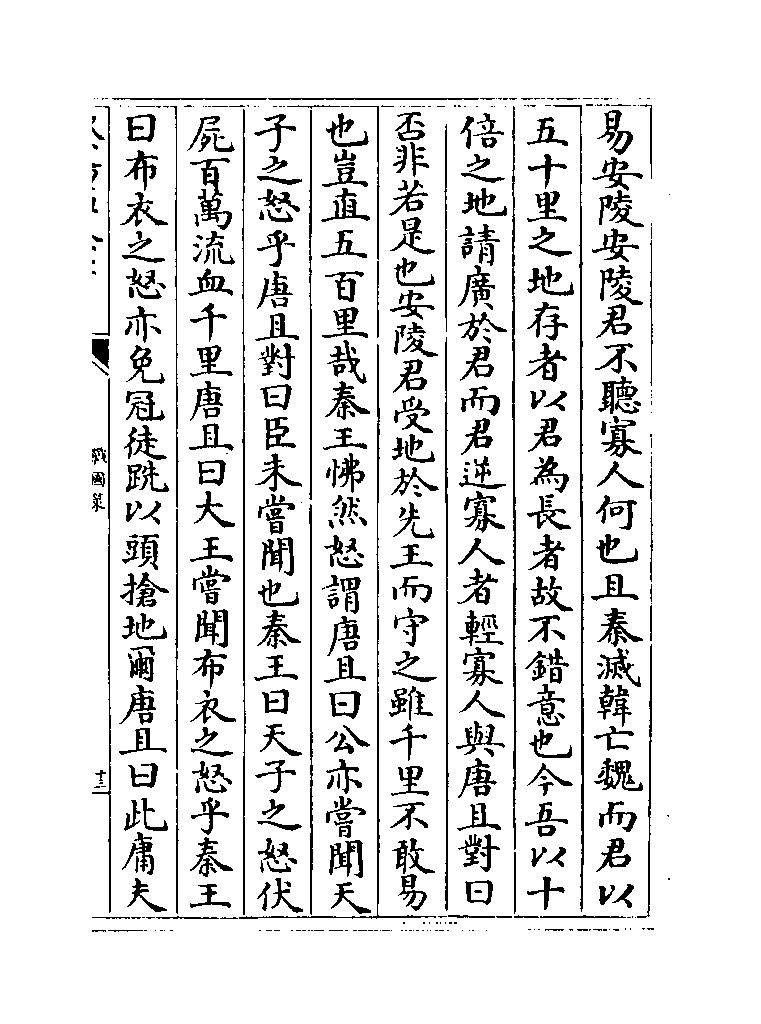 易安陵安陵君不聽寡人何也且秦滅韓亡魏而君以
五十里之地存者以君為長者故不錯意也今吾以十
倍之地請廣於君而君逆寡人者輕寡人與唐且對曰
否非若是也安陵君受地於先王而守之雖千里不敢易
也豈直五百里哉秦王怫然怒謂唐且曰公亦嘗聞天
子之怒乎唐且對曰臣未嘗聞也秦王曰天子之怒伏
屍百萬流血千里唐且曰大王嘗聞布衣之怒乎秦王
曰布衣之怒亦免冠徒跣以頭搶地爾唐且曰此庸夫
戰國策
十三